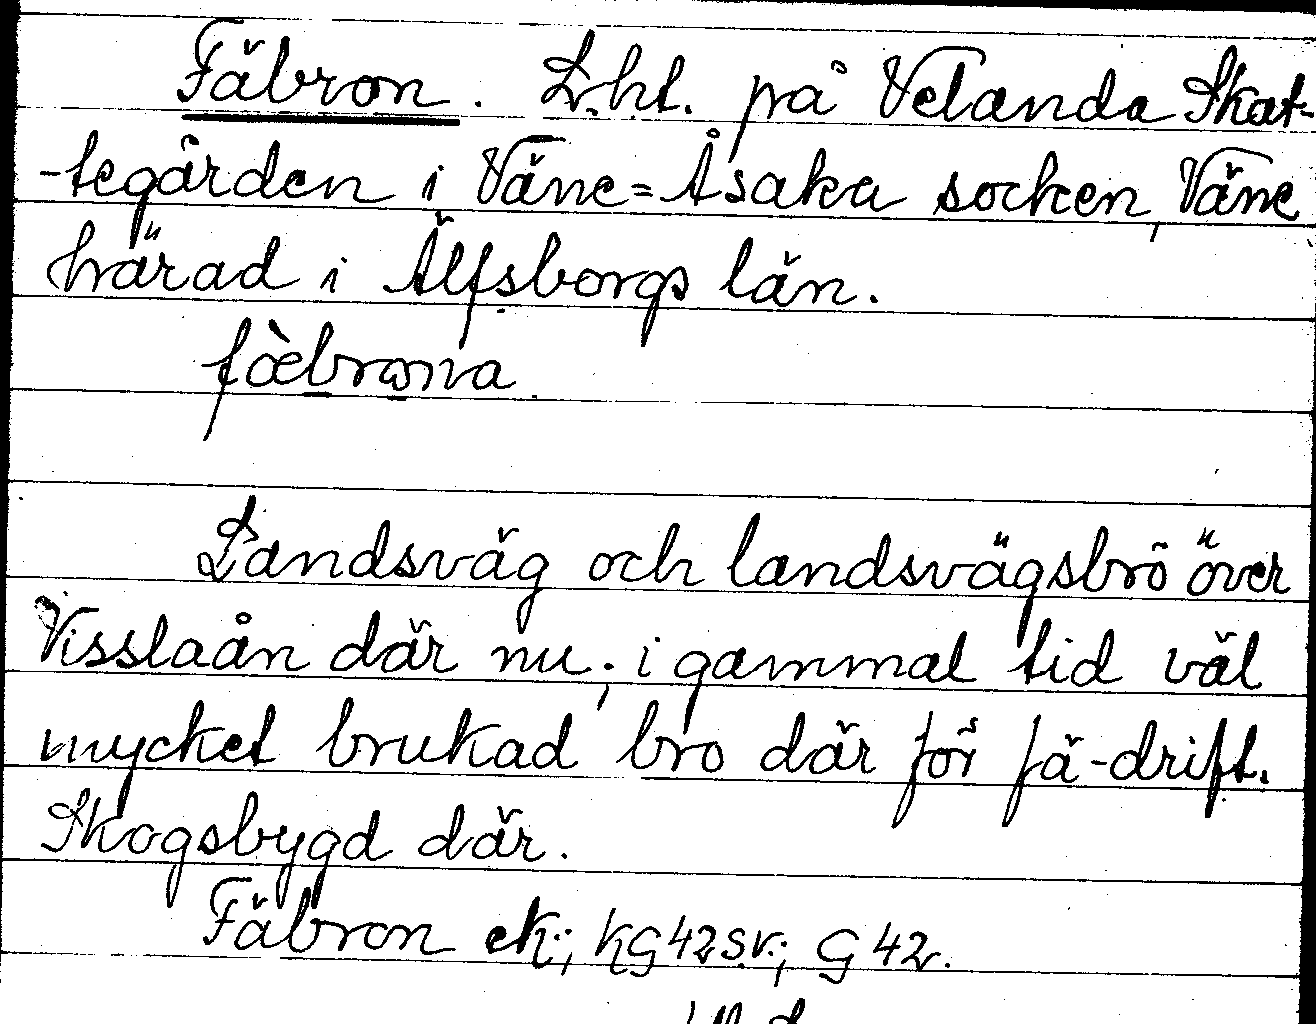 Fäbron. L.ht. på Velanda Skat-
-tegården i Väne=Åsaka socken, Väne
härad i Älfsborgs län.
fæ̀brona
Landsväg och landsvägsbro över
Visslaån där nu; i gammal tid väl
mycket brukad bro där för fä-drift.
Skogsbygd där.
Fäbron ek.; KG42sv.; G42.